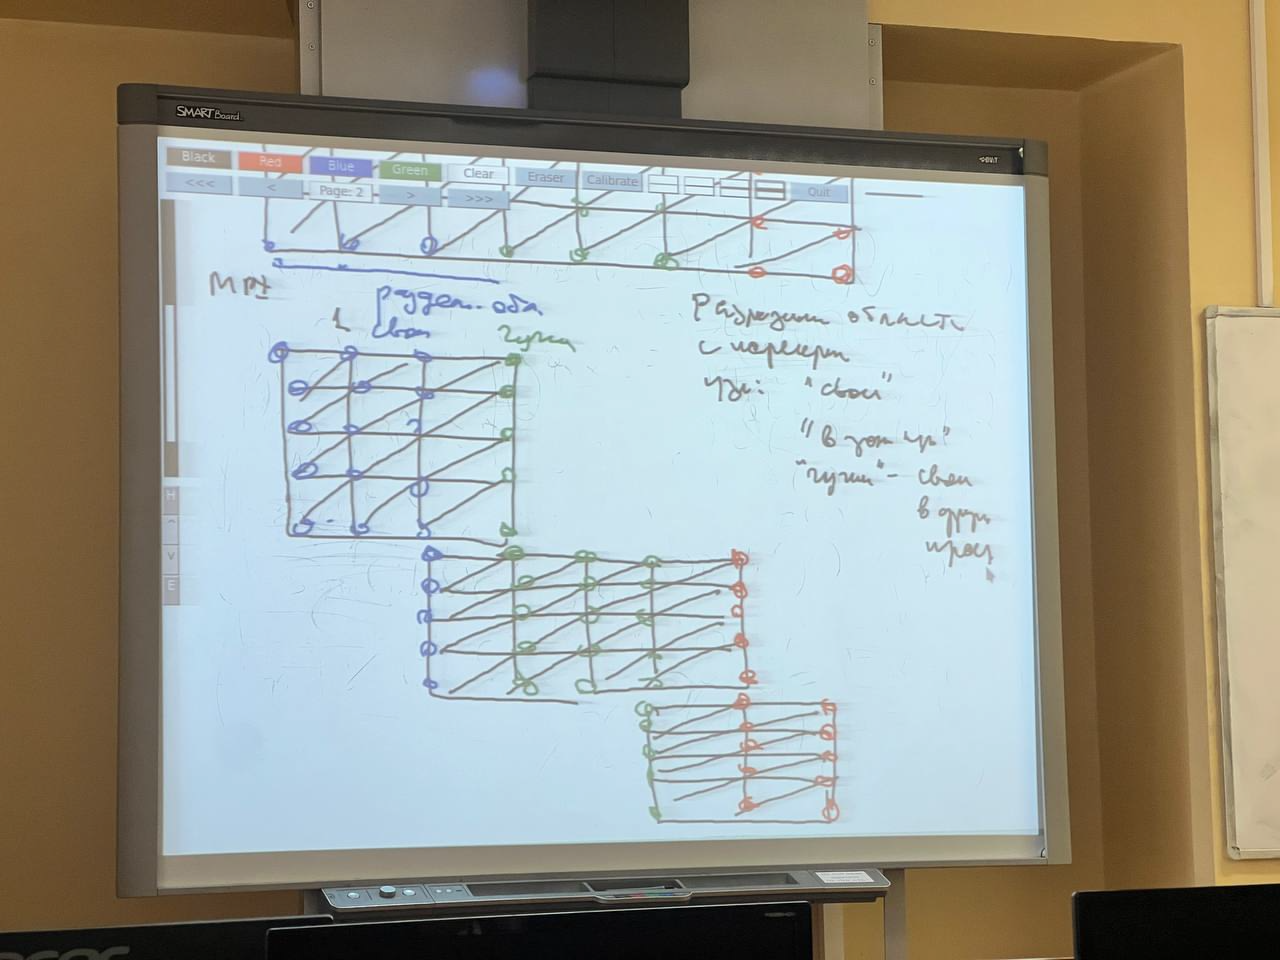 SMART Board
Black Red Blue Green Clear Eraser Calibrate Quit
<<< < Page: 2 > >>>
MPI
раздел. обл
1 свои чужие
Разрезали область
с перекрыт
узл: "свои"
"чужие" - свои
в друг.
проц
H
^
v
E
acer